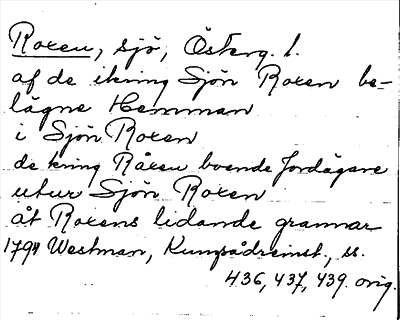 Roxen, sjö, Österg. l.
af de ikring Sjön Roxen be-
lägne Hemman
i Sjön Roxen
de kring Råxen boende Jordägare
utur Sjön Roxen
åt Roxens lidande grannar
Westman, Kungsådreinst., ss.
436, 437, 439. orig.